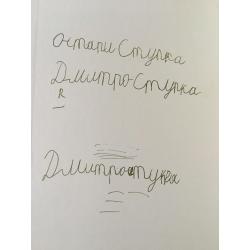 Остапи Ступка
Дмитро Ступка
R
Дмитроступка